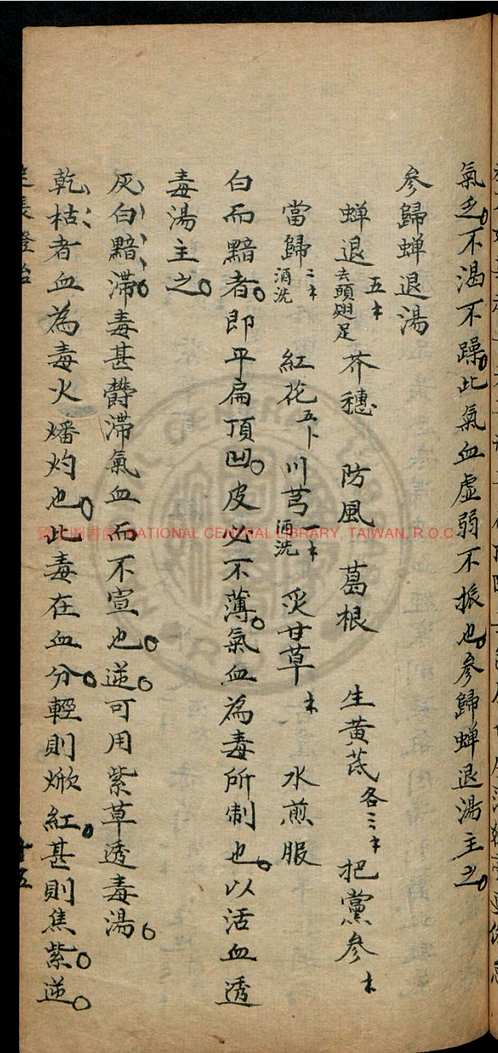 氣乏不渴不躁此氣血虛弱不振也參歸蟬退湯主之
參歸蟬退湯
蟬退去頭翅足 五 芥穗 防風 葛根 生黃芪各三 把黨參
當歸酒洗三 紅花五卜 川芎酒洗一 炙甘草 水煎服
白而黯者即平扁頂凹皮必不薄氣血為毒所制也以活血透
毒湯主之
灰白黯滯毒甚欝滯氣血而不宣也逆可用紫草透毒湯
乾枯者血為毒火燔灼也此毒在血分輕則焮紅甚則焦紫逆
NATIONAL CENTRAL LIBRARY, TAIWAN, R.O.C